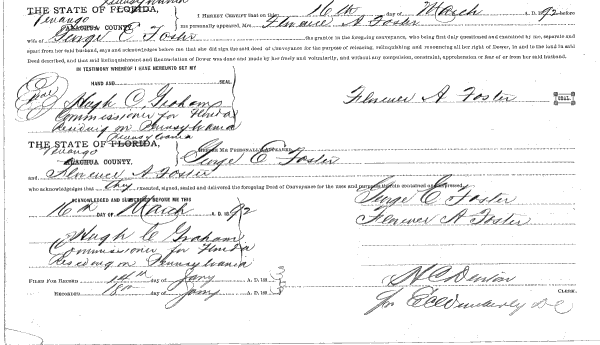 Pennsylvania
THE STATE OF FLORIDA,
Venango
ALACHUA COUNTY.
I HEREBY CERTIFY that on this 16th day of March A. D. 1892 before
me personally appeared, Mrs. Florence A Foster
wife of George E Foster the grantor in the foregoing conveyance, who being first duly questioned and examined by me, separate and
apart from her said husband, says and acknowledges before me that she did sign the said deed of Conveyance for the purpose of releasing, relinquishing and renouncing all her right of Dower, in and to the land in said
Deed described, and that said Relinquishment and Renunciation of Dower was done and made by her freely and voluntarily, and without any compulsion, constraint, apprehension or fear of or from her said husband.
IN TESTIMONY WHEREOF I HAVE HEREUNTO SET MY
HAND AND SEAL
Seal
Hugh C. Graham
Commissioner for Florida
Residing in Pennsylvania
Florence A Foster SEAL.
Pennsylvania
THE STATE OF FLORIDA,
Venango
ALACHUA COUNTY.
BEFORE ME PERSONALLY APPEARED
George E Foster
and Florence A Foster
who acknowledges that they executed, signed, sealed and delivered the foregoing Deed of Conveyance for the uses and purposes therein contained and expressed.
ACKNOWLEDGED AND SUBSCRIBED BEFORE ME THIS
16th DAY OF March A. D. 1892
George E Foster
Florence A Foster
Hugh C Graham
Commissioner for Florida
Residing in Pennsylvania
FILED FOR RECORD 14th day of Jany A. D. 189
RECORDED 18th day of Jany A. D. 189
CLERK.